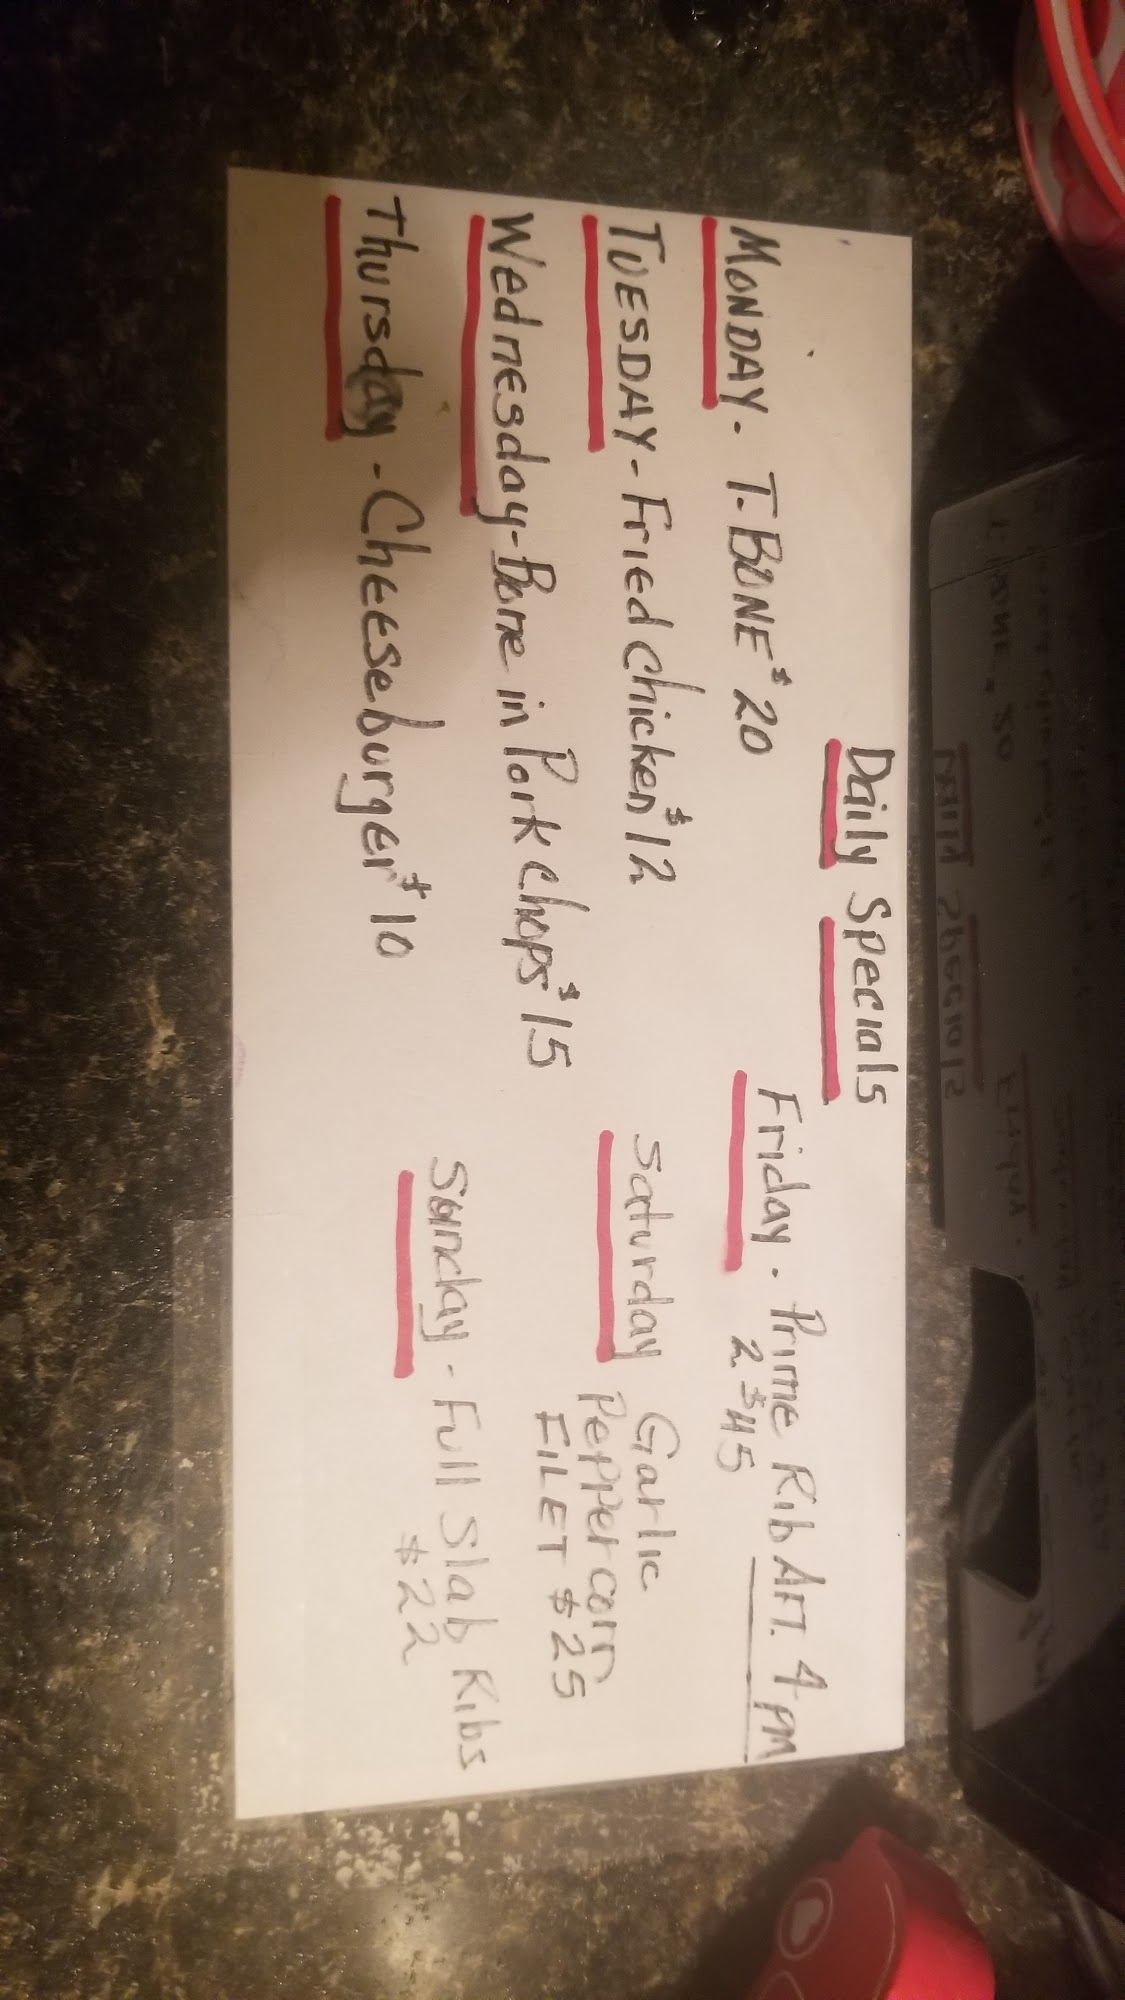 Daily Specials
MONDAY. T-BONE $20
TUESDAY - Fried Chicken $12
Wednesday - Bone in Pork Chops $15
Thursday - Cheeseburger $10
Friday. Prime Rib AFT. 4 pm
2 $45
Saturday Garlic
Peppercorn
FILET $25
Sunday - Full Slab Ribs
$22